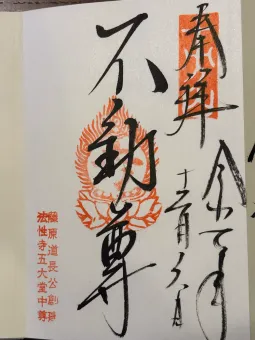 奉拝
令和
十二月八日
不動尊
藤原道長公創建
法性寺五大堂中尊